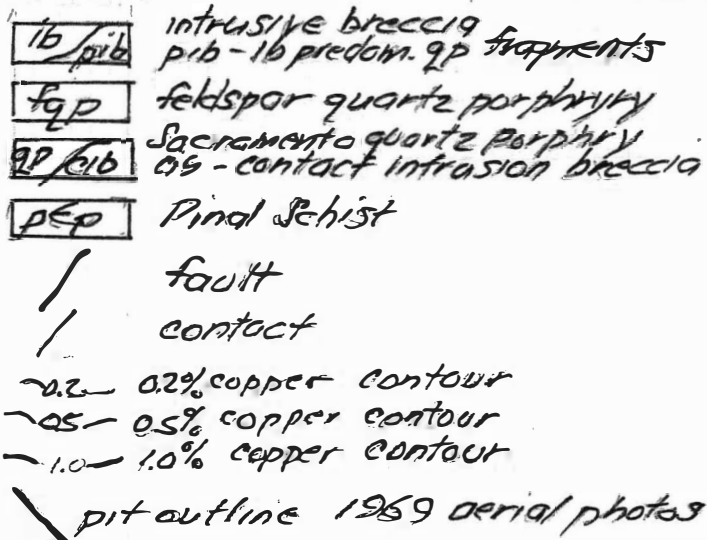 ib/pib intrusive breccia
pib-ib predom. qp fragments
fqp feldspar quartz porphryry
Sacramento quartz porphry
qp/cib as - contact intrusion breccia
p€p Pinal Schist
fault
contact
0.2 0.2% copper contour
0.5 0.5% copper contour
1.0 1.0% copper contour
pit outline 1969 aerial photos